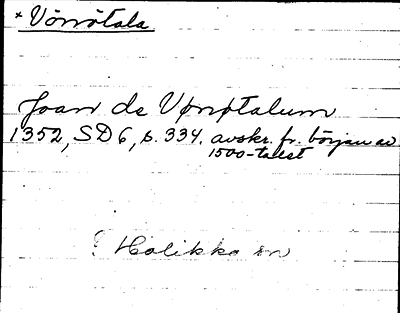 * Vönnötala
Joan de Vønøtalum
1352, SD 6, s. 334. avskr. fr. början av
1500-talet
? Halikko sn